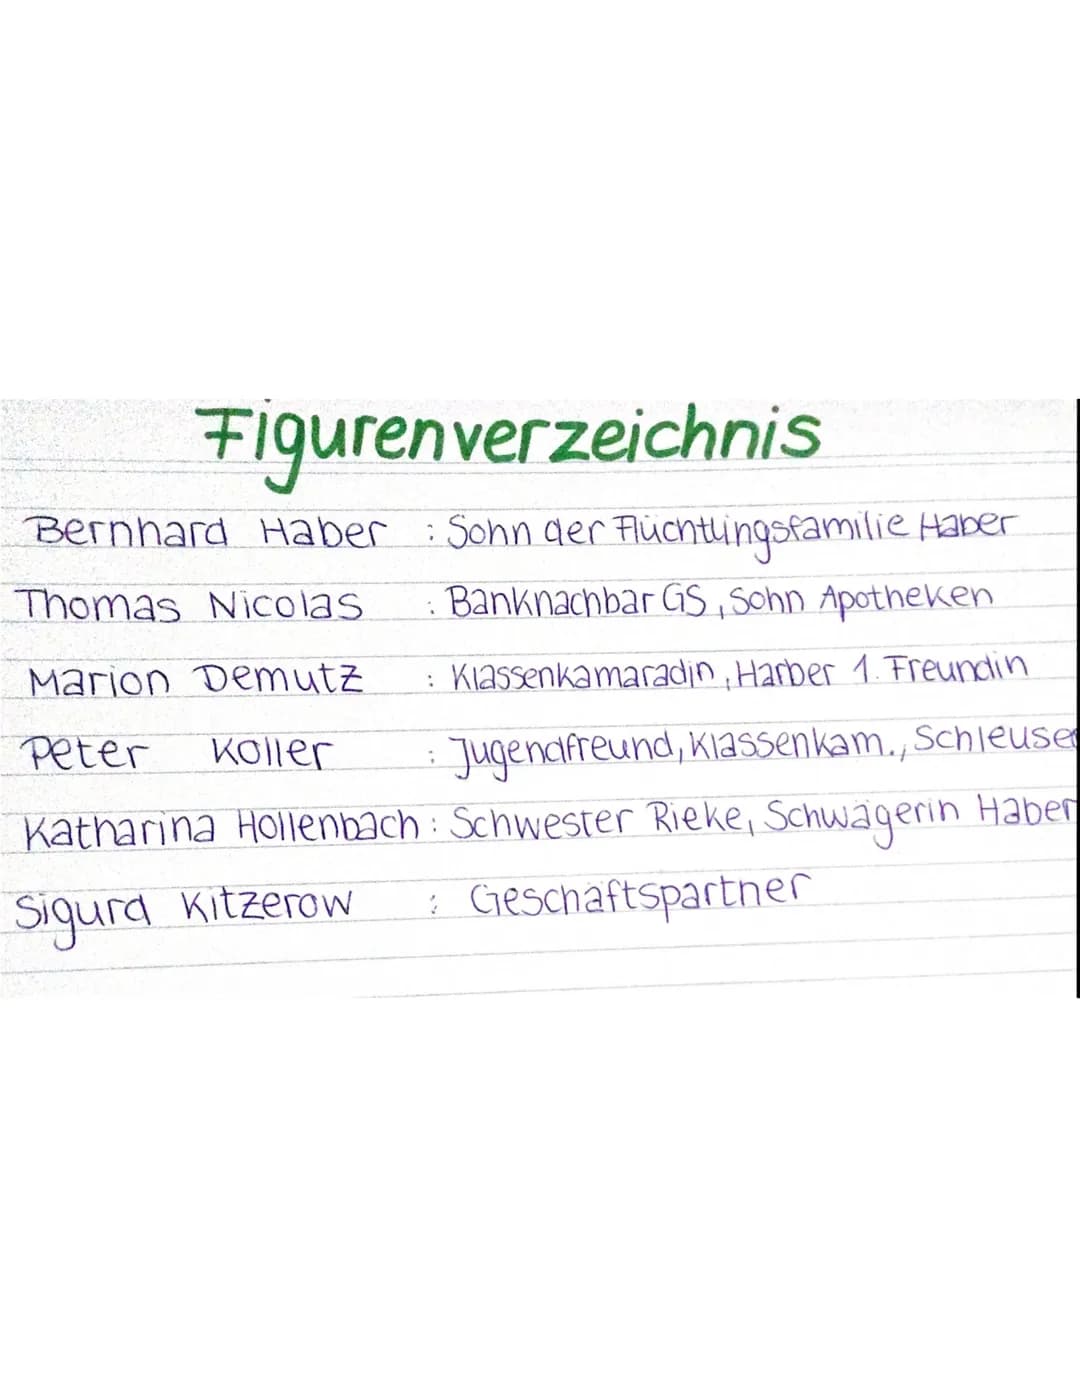 Figurenverzeichnis
Bernhard Haber : Sohn der Flüchtlingsfamilie Haber
Thomas Nicolas : Banknachbar GS, Sohn Apotheken
Marion Demutz : Klassenkamaradin, Harber 1. Freundin
Peter Koller : Jugendfreund, Klassenkam., Schleuser
Katharina Hollenbach : Schwester Rieke, Schwägerin Haber
Sigurd Kitzerow : Geschäftspartner